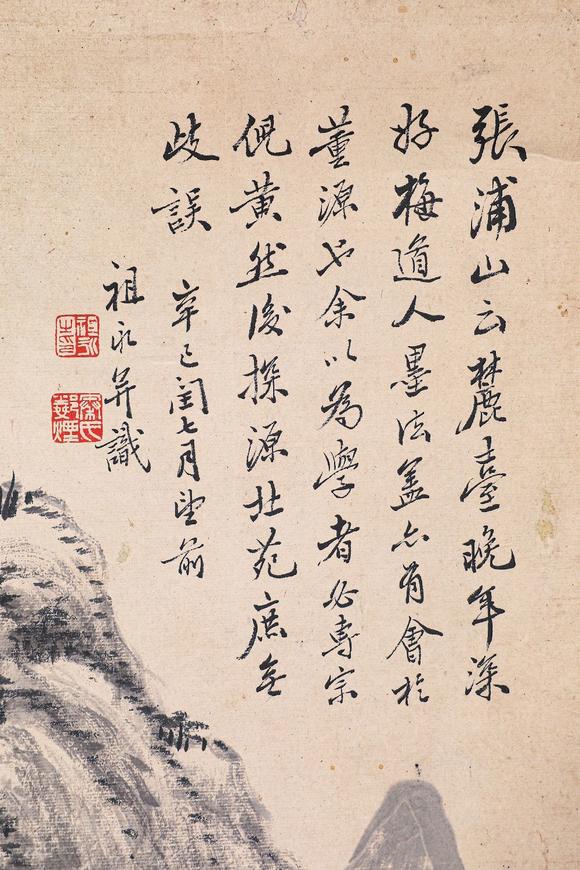 張浦山云麓臺晚年深
好梅道人墨法蓋亦有會於
董源也余以為學者必專宗
倪黃然後探源北苑庶無
歧誤 辛巳閏七月望前
祖永并識